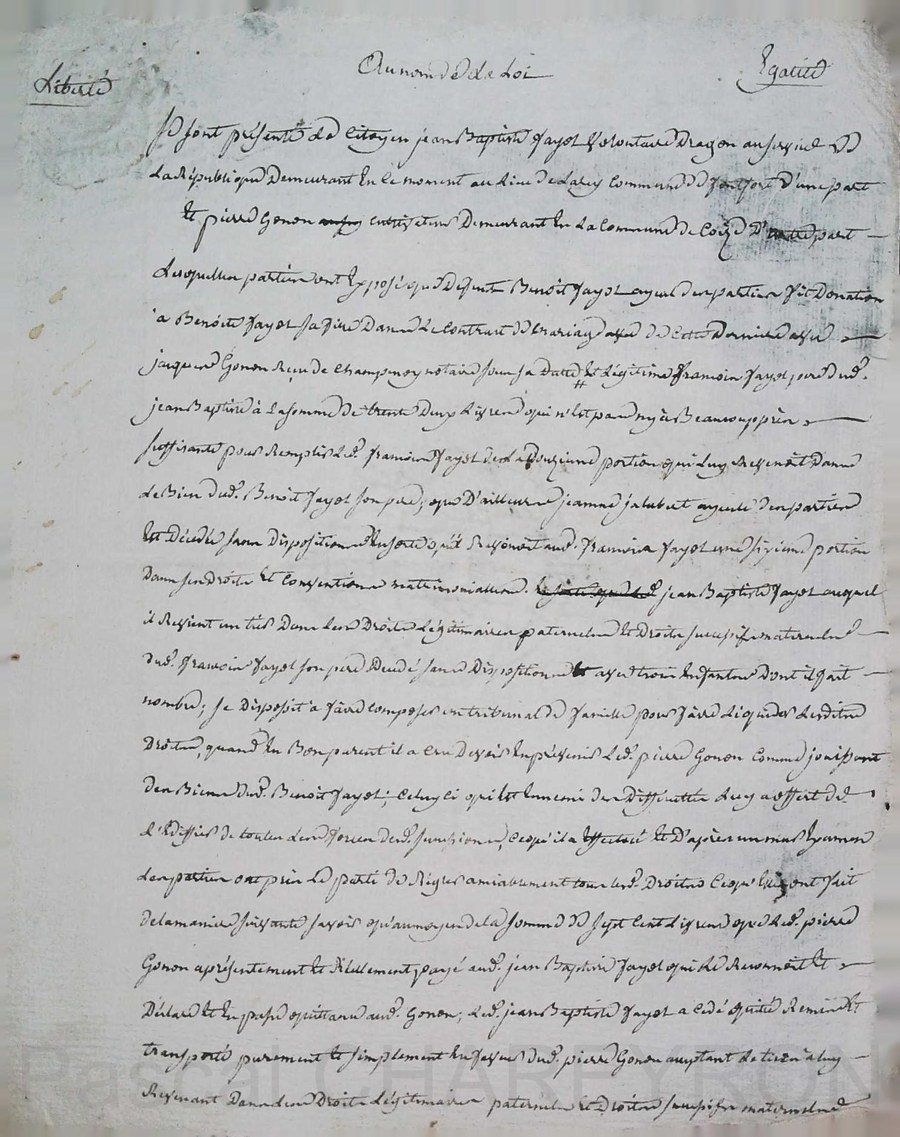 Liberté
Au nom de la Loi
Egalité
Se sont présenté le Citoyen jean Baptiste fayol Volontaire Dragon au service de
La République Demeurant En ce moment au lieu de Commune de d'une part
Et pierre Gonon cultivateur Demeurant En La Commune de part
Lesquelles parties ont Exposé que Defunt Benoît fayol ayeul des parties fit Donation
a Benoîte fayol sa fille Dans Le Contrat de mariage de Cette Derniere avec
jacques Gonon Reçu de Champenoy notaire sous sa Datte Et Légitima francois fayol pere dud.
jean Baptiste à La somme de trente Deux Livres qui n'Est pas Beaucoup près
suffisante pour Remplir Led. francois fayol de La portion qui Luy Revenoit Dans
Le Bien dud. Benoît fayol son pere, que D'ailleurs jeanne jalabert ayeule des parties
Est Décédée sans Disposition Ensorte qu'il Revenoit aud. francois fayol une sixieme portion
Dans ses Droits Et Conventions matrimoniales. jean Baptiste fayol auquel
il Revient un tier Dans Les Droits Légitimaires paternels Et Droits successifs maternels
dud. francois fayol son pere Décédé sans Disposition avec trois Enfants Dont il fait
nombre; se Disposoit a faire composer un tribunal de famille pour faire Liquider Lesdits
Droits, quand En Bon parent il a cru Devoir En prévenir Led. pierre Gonon Comme jouissant
des Biens dud. Benoît fayol; Celuy ci qui Est Ennemi des Difficultés Luy a offert de
de toutes Les forces de Succession, Ce qu'il a Effectué Et D'après un mur Examen
Les parties ont pris Le parti de Régler amiablement tous lesd. Droits Ce qu'ils ont fait
de la maniere suivante savoir qu'au moyen de la somme de sept Cent Livres que Led. pierre
Gonon a présentement Et Réellement payé aud. jean Baptiste fayol qui Le Reconnoît Et
Déclare Et En passe quittance aud. Gonon, Led. jean Baptiste fayol a Cédé quitté Remis Et
transporté purement Et simplement En faveur dud. pierre Gonon acceptant Le tier a luy
Revenant Dans Les Droits Légitimaires paternels Et Droits successifs maternels
Pascal CHAREYRON